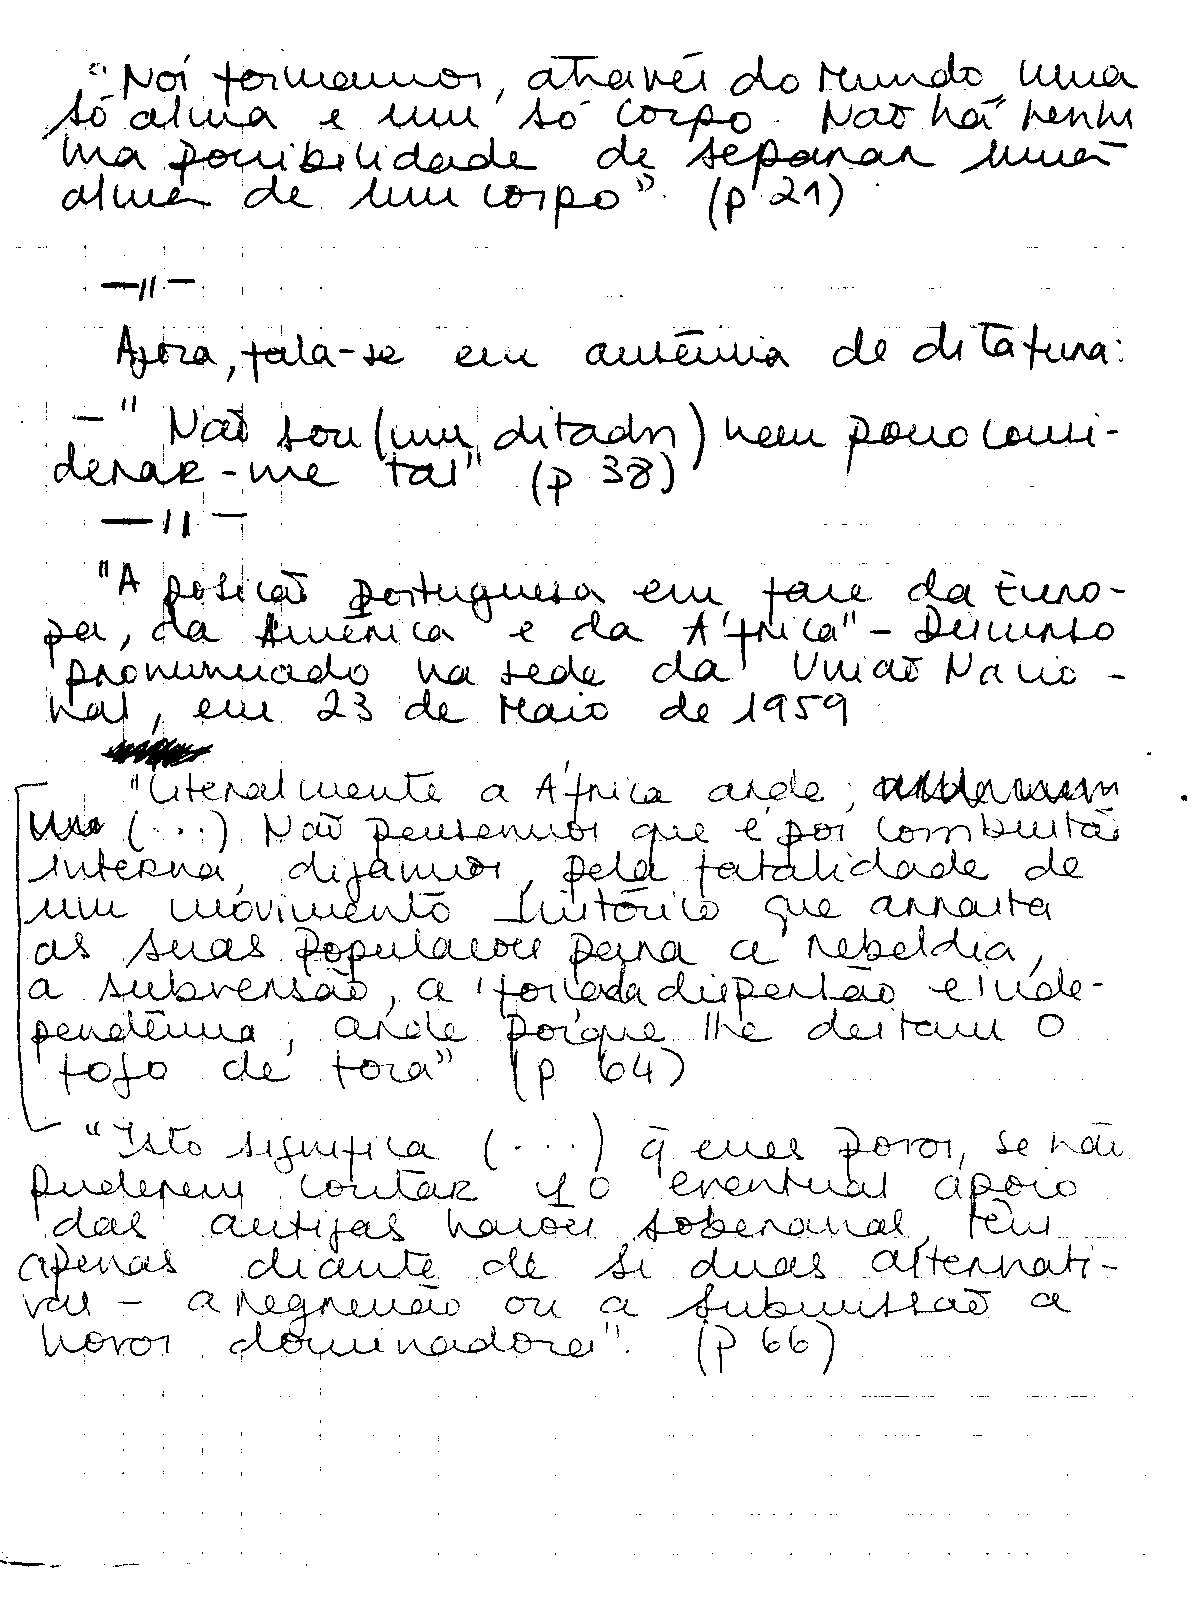 "Nós formamos, através do Mundo, uma
só alma e um só corpo. Não há nenhu
ma possibilidade de separar uma
alma de um corpo". (p 21)
—//—
Agora, fala-se em ausência de ditadura:
—" Não sou (um ditador) nem posso consi-
derar-me tal" (p 38)
—//—
"A posição portuguesa em face da Euro-
pa, da América e da África" - Discurso
pronunciado na sede da União Nacio-
nal, em 23 de Maio de 1959
"Literalmente a África arde;
(...) Não pensemos que é por combustão
interna, digamos, pela fatalidade de
um movimento histórico que arrasta
as suas populações para a rebeldia,
a subversão, a forçada dispersão e inde-
pendência; arde porque lhe deitam o
fogo de fora" (p 64)
"Isto significa (...) q̄ esses povos, se não
puderem contar c/ o eventual apoio
das antigas nações soberanas, têm
apenas diante de si duas alternati-
vas - a regressão ou a submissão a
novos dominadores". (p 66)